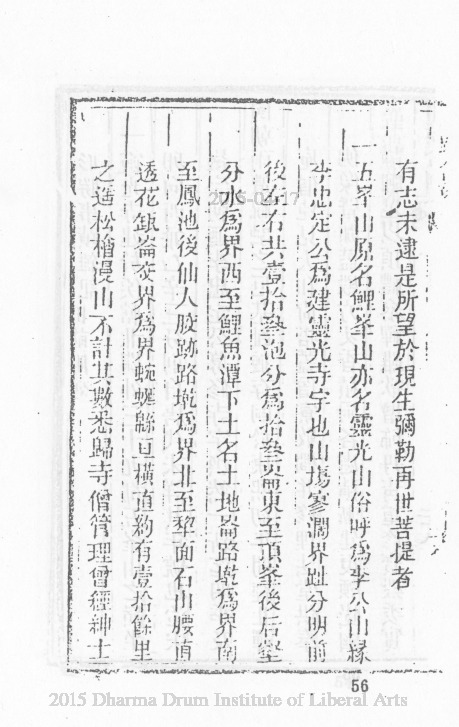 有志未逮是所望於現生彌勒再世菩提者
一五峯山原名鯉峯山亦名靈光山俗呼爲李公山緣
李忠定公爲建靈光寺宇也山塲寥濶界趾分明前
後左右共壹拾叄泡分爲拾叄崙東至頂峯後后壑
分水爲界西至鯉魚潭下土名土地崙路墘爲界南
至鳳池後仙人股跡路墘爲界北至犂面石山腰直
透花缻崙交界爲界蜿蜒緜亘橫直約有壹拾餘里
之遥松檜漫山不計其數悉歸寺僧管理曾經紳士
56
2015 Dharma Drum Institute of Liberal Arts